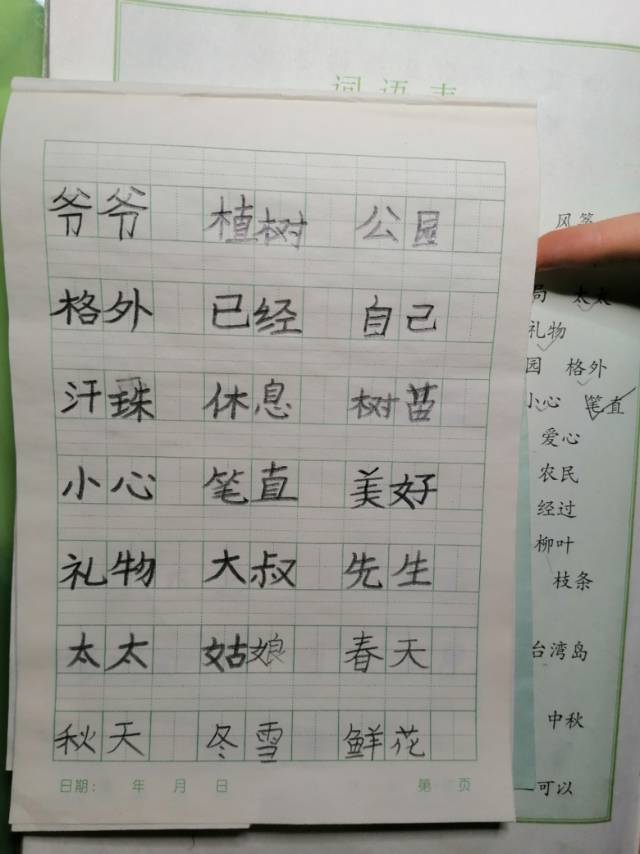 词语表
爷爷 植树 公园
格外 已经 自己
汗珠 休息 树苗
小心 笔直 美好
礼物 大叔 先生
太太 姑娘 春天
秋天 冬雪 鲜花
日期: 年 月 日 第 页
风筝
局 太太
礼物
园 格外
小心 笔直
爱心
农民
经过
柳叶
枝条
台湾岛
中秋
可以